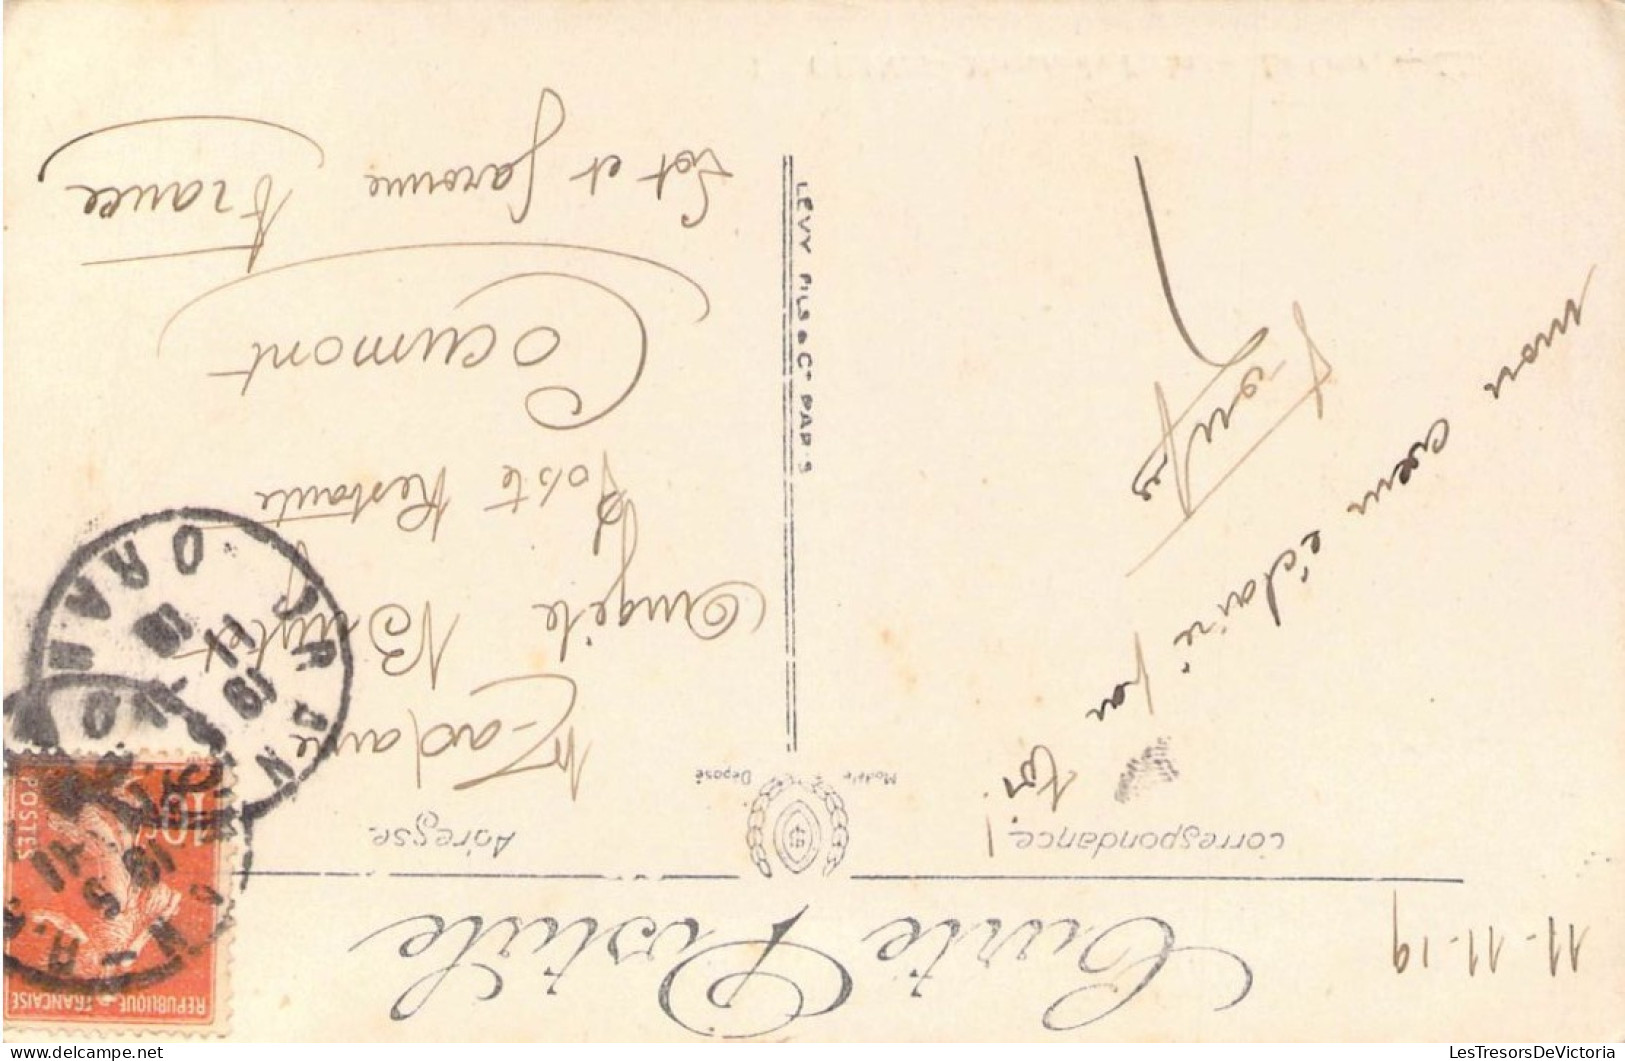 11-11-19
Carte Postale
Correspondance
Adresse
Modèle Déposé
toi
par
éclairé
cœur
mon
Madame
Angèle
Poste Restante
Cocumont
Lot et Garonne
France
LÉVY FILS & Cie PARIS
ORAN
11
19
10c
POSTES
REPUBLIQUE FRANCAISE
LesTresorsDeVictoria